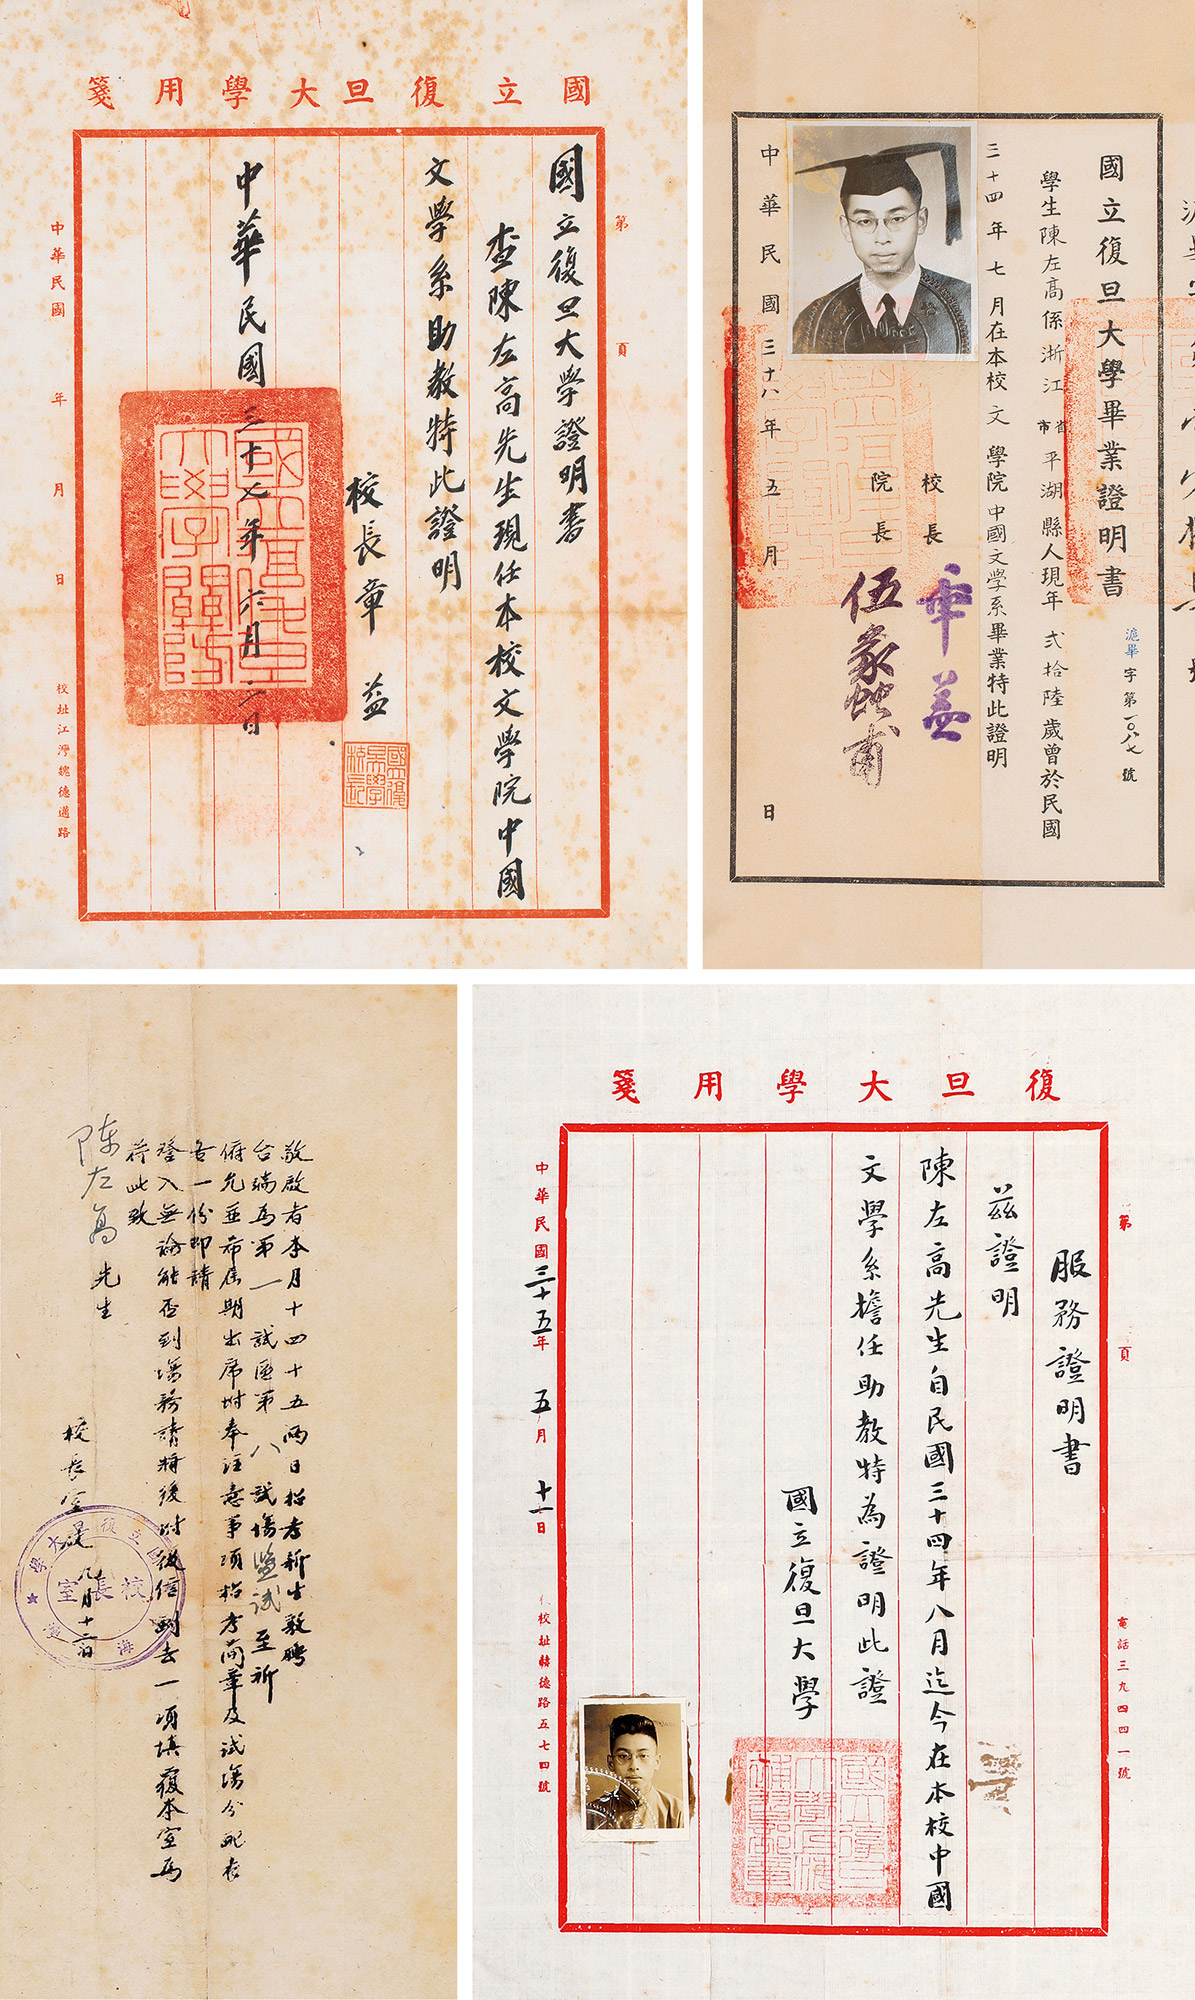 國立復旦大學用箋
第 頁
國立復旦大學證明書
查陳左高先生現任本校文學院中國
文學系助教特此證明
校長章益
中華民國三十七年六月二日
中華民國 年 月 日
校址江灣魏德邁路
國立復旦大學關防
國立復旦大學校長
國立復旦大學畢業證明書
滬畢字第一〇八七號
學生陳左高係浙江省市平湖縣人現年弍拾陸歲曾於民國
三十四年七月在本校文學院中國文學系畢業特此證明
校長 章益
院長 伍蠡甫
中華民國三十八年五月 日
敬啟者本月十四十五兩日招考新生敦聘
台端為第一試區第八試場監試至祈
俯允並希屆期出席附奉注意事項招考簡章及試場分配表
各一份即請
登入無論能否到場務請將後附復信剪去一項填覆本室為
荷此致
陳左高先生
校長室啟 八月十二日
校長室
復旦大學用箋
第 頁
服務證明書
茲證明
陳左高先生自民國三十四年八月迄今在本校中國
文學系擔任助教特為證明此證
國立復旦大學
中華民國三十五年五月十一日
校址赫德路五七四號
電話三九四四一號